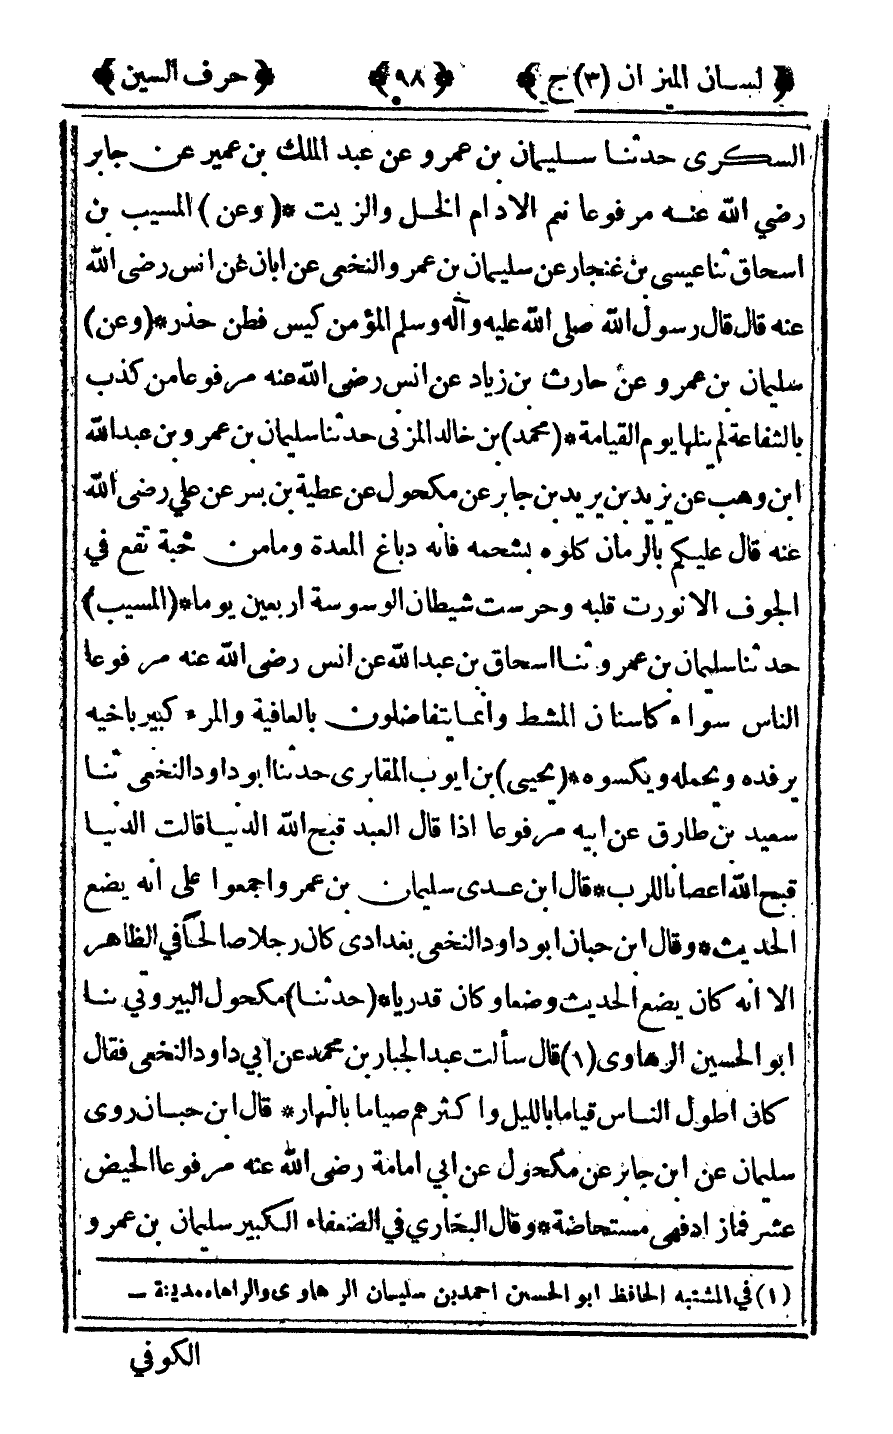 ﴿ لسان الميزان (٣) ج ﴾ ﴿ ٩٨ ﴾ ﴿ حرف السين ﴾
السكرى حدثنا سليمان بن عمرو عن عبد الملك بن عمير عن جابر
رضي الله عنه مرفوعا نعم الادام الخل والزيت *( وعن ) المسيب بن
اسحاق ثنا عيسى بن غنجار عن سليمان بن عمرو النخعى عن ابان عن انس رضى الله
عنه قال قال رسول الله صلى الله عليه وآله وسلم المؤمن كيس فطن حذر *(وعن)
سليمان بن عمرو عن حارث بن زياد عن انس رضى الله عنه مرفوعا من كذب
بالشفاعة لم ينلها يوم القيامة *(محمد) بن خالد المزنى حدثنا سليمان بن عمرو بن عبد الله
ابن وهب عن يزيد بن يريد بن جابر عن مكحول عن عطية بن بسر عن علي رضى الله
عنه قال عليكم بالرمان كلوه بشحمه فانه دباغ المعدة وما من حبة تقع في
الجوف الا نورت قلبه وحرست شيطان الوسوسة اربعين يوما *(المسيب)
حدثنا سليمان بن عمرو ثنا اسحاق بن عبد الله عن انس رضى الله عنه مرفوعا
الناس سواء كاسنان المشط وانما يتفاضلون بالعافية والمرء كبير باخيه
يرفده ويحمله ويكسوه *(يحيى) بن ايوب المقابرى حدثنا ابو داود النخعى ثنا
سعيد بن طارق عن ابيه مرفوعا اذا قال العبد قبح الله الدنيا قالت الدنيا
قبح الله اعصانا للرب * قال ابن عدى سليمان بن عمر واجمعوا على انه يضع
الحديث * وقال ابن حبان ابو داود النخعى بغدادى كان رجلا صالحا في الظاهر
الا انه كان يضع الحديث وضعا وكان قدريا *(حدثنا) مكحول البيروتي بنا
ابو الحسين الرهاوى (١) قال سألت عبد الجبار بن محمد عن ابي داود النخعى فقال
كان اطول الناس قياما بالليل واكثرهم صياما بالنهار * قال ابن حبان روى
سليمان عن ابن جابر عن مكحول عن ابي امامة رضى الله عنه مرفوعا الحيض
عشر فماز ادفهى مستحاضة * وقال البخاري في الضعفاء الكبير سليمان بن عمرو
(١) في المشتبه الحافظ ابو الحسين احمد بن سليمان الرهاوى والراها مدينة ـ
الكوفي